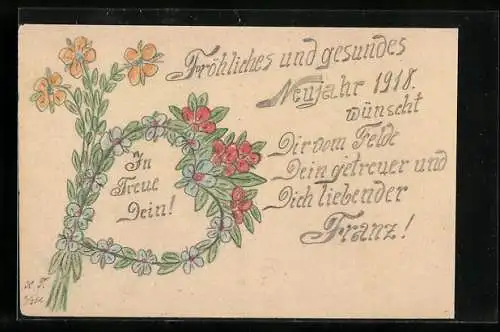 Fröhliches und gesundes
Neujahr 1918.
wünscht
Dir vom Felde
Dein getreuer und
Dich liebender
Franz!
In
Treue
Dein!